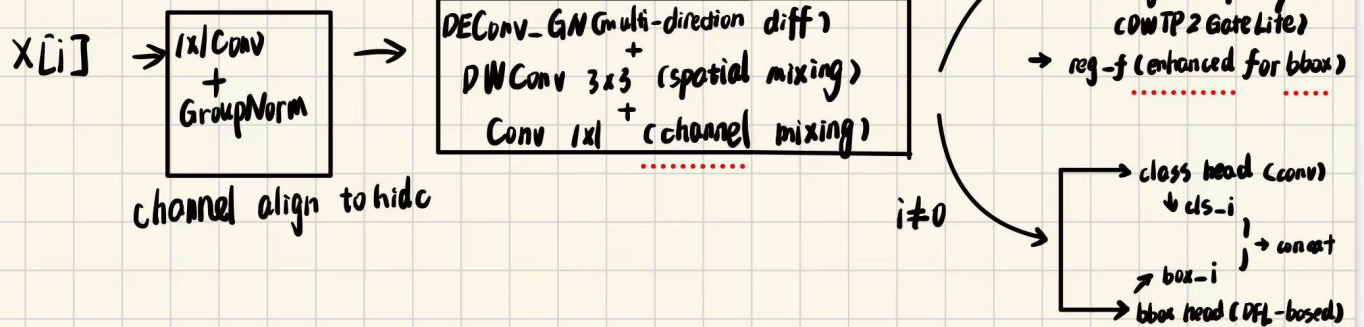 X[i]
1x1 Conv
+
GroupNorm
channel align to hidc
DEConv_GN(multi-direction diff)
+
DWConv 3x3 (spatial mixing)
+
Conv 1x1 (channel mixing)
i≠0
(DWTP2GateLite)
→ reg-f (enhanced for bbox)
class head (conv)
↓ cls_i
→ concat
↗ box_i
bbox head (DFL-based)